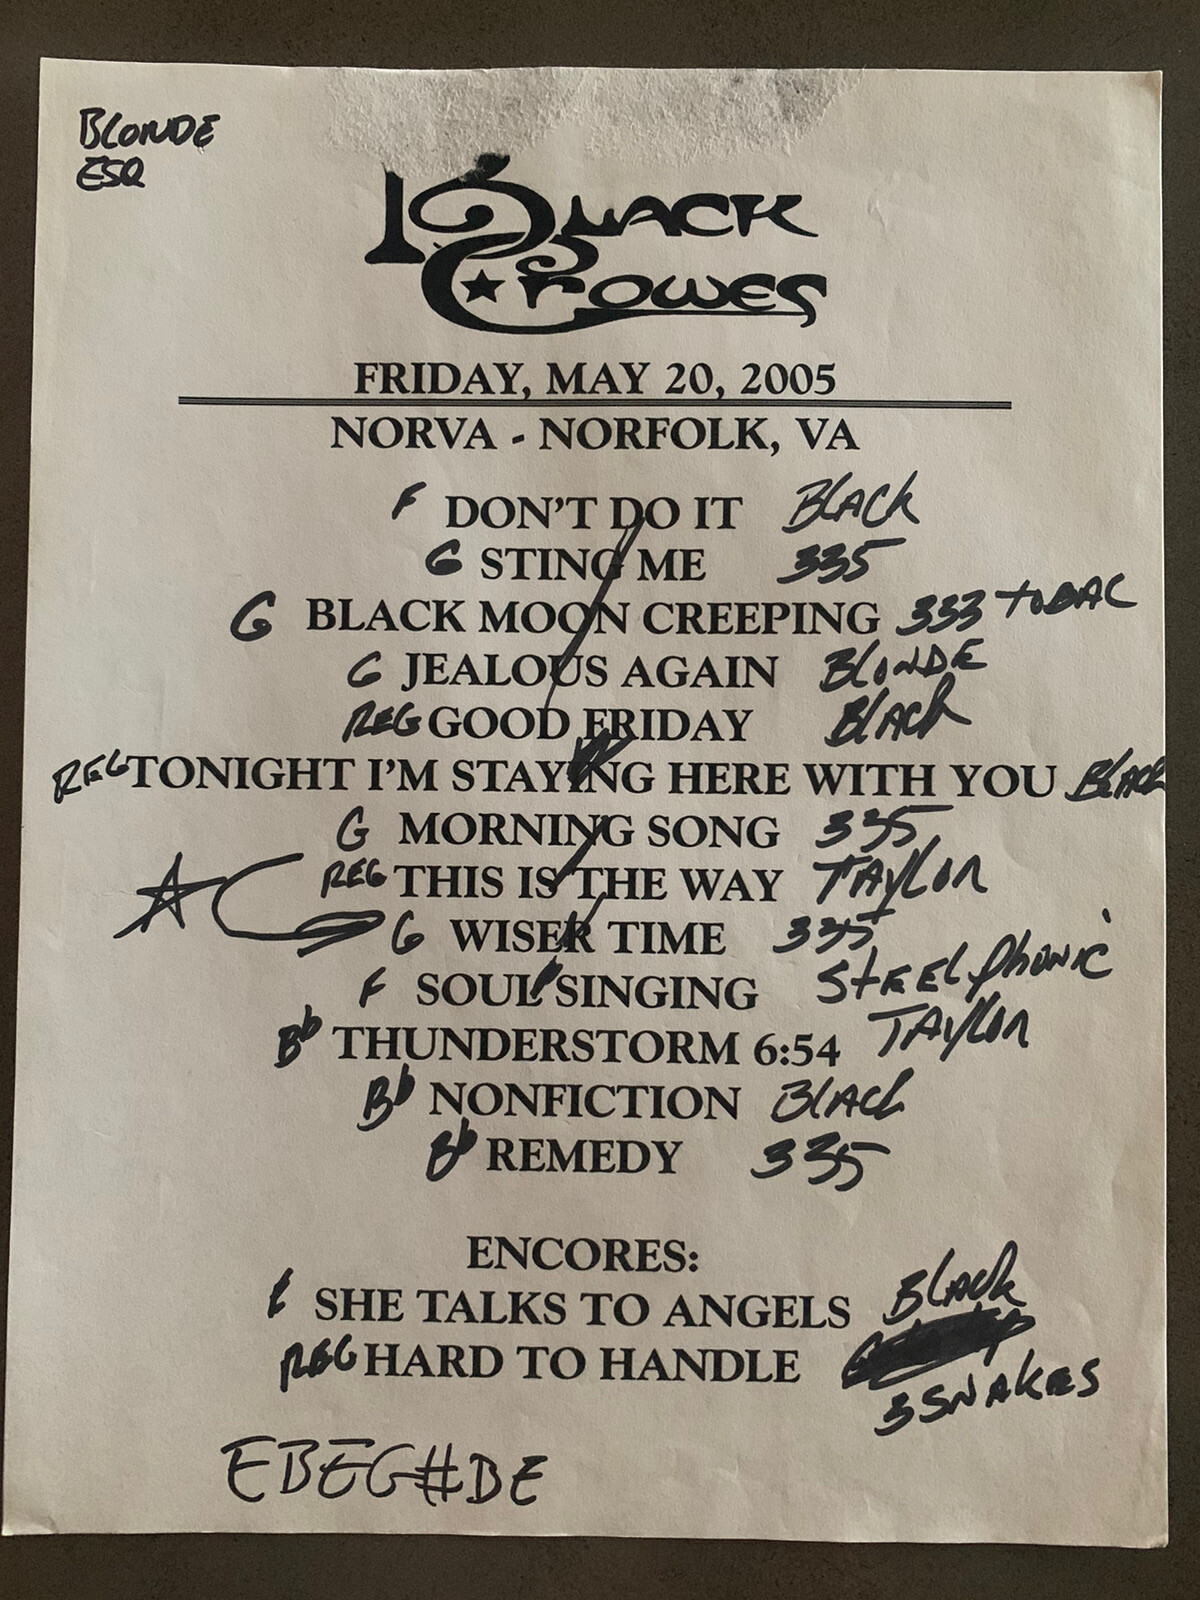 BLONDE
ESQ
BLACK
CROWES
FRIDAY, MAY 20, 2005
NORVA - NORFOLK, VA
F DON'T DO IT BLACK
G STING ME 335
G BLACK MOON CREEPING 333 TOBAC
G JEALOUS AGAIN BLONDE
REG GOOD FRIDAY BLACK
REG TONIGHT I'M STAYING HERE WITH YOU BLACK
G MORNING SONG 335
REG THIS IS THE WAY TAYLOR
G WISER TIME 335
F SOUL SINGING STEELPHONIC
Bb THUNDERSTORM 6:54 TAYLOR
Bb NONFICTION BLACK
Bb REMEDY 335
ENCORES:
E SHE TALKS TO ANGELS BLACK
REG HARD TO HANDLE
3 SNAKES
EBEG#BE